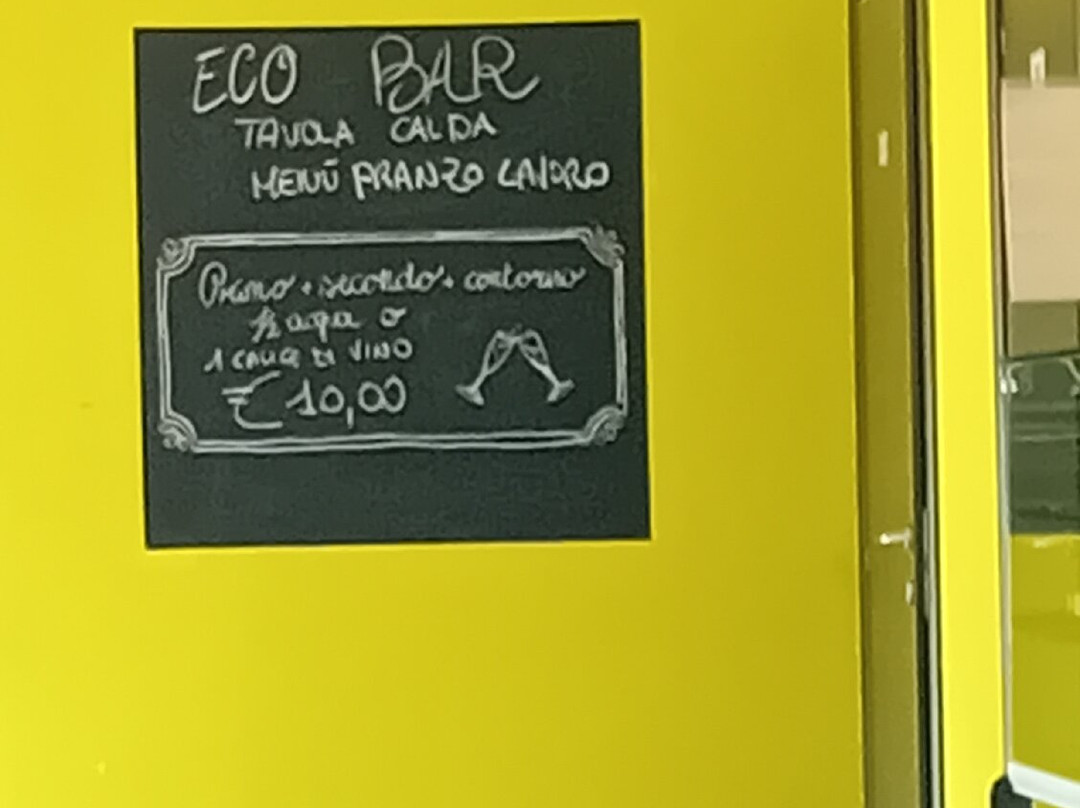 ECO BAR
TAVOLA CALDA
MENÚ PRANZO LAVORO
Primo + secondo + contorno
½ acqua o
1 CALICE DI VINO
€ 10,00